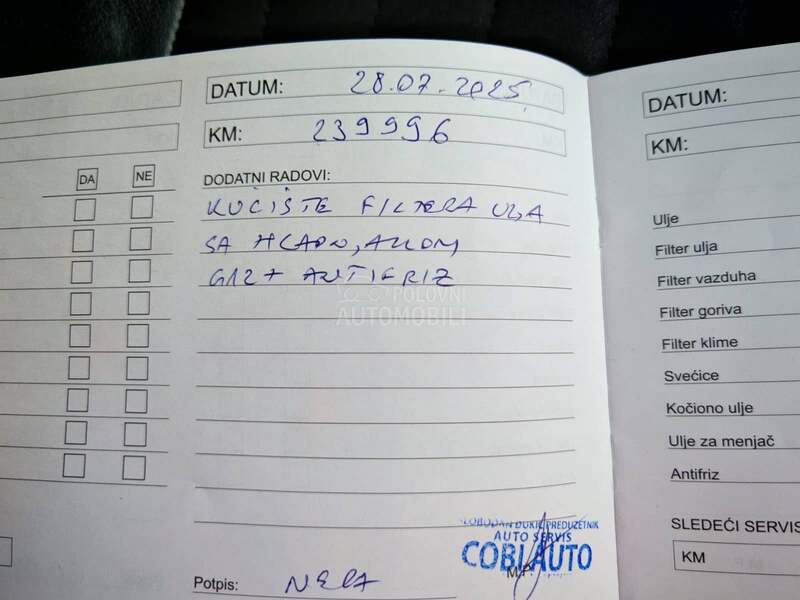 DATUM: 28.07.2025
KM: 239996
DA NE
DODATNI RADOVI:
KUĆIŠTE FILTERA ULJA
SA HLADNJAKOM,
G12+ ANTIFRIZ
POLOVNI
AUTOMOBILI
SLOBODAN ĐUKIĆ PREDUZETNIK
AUTO SERVIS
COBI AUTO
M.P.
Potpis:
DATUM:
KM:
Ulje
Filter ulja
Filter vazduha
Filter goriva
Filter klime
Svećice
Kočiono ulje
Ulje za menjač
Antifriz
SLEDEĆI SERVIS
KM